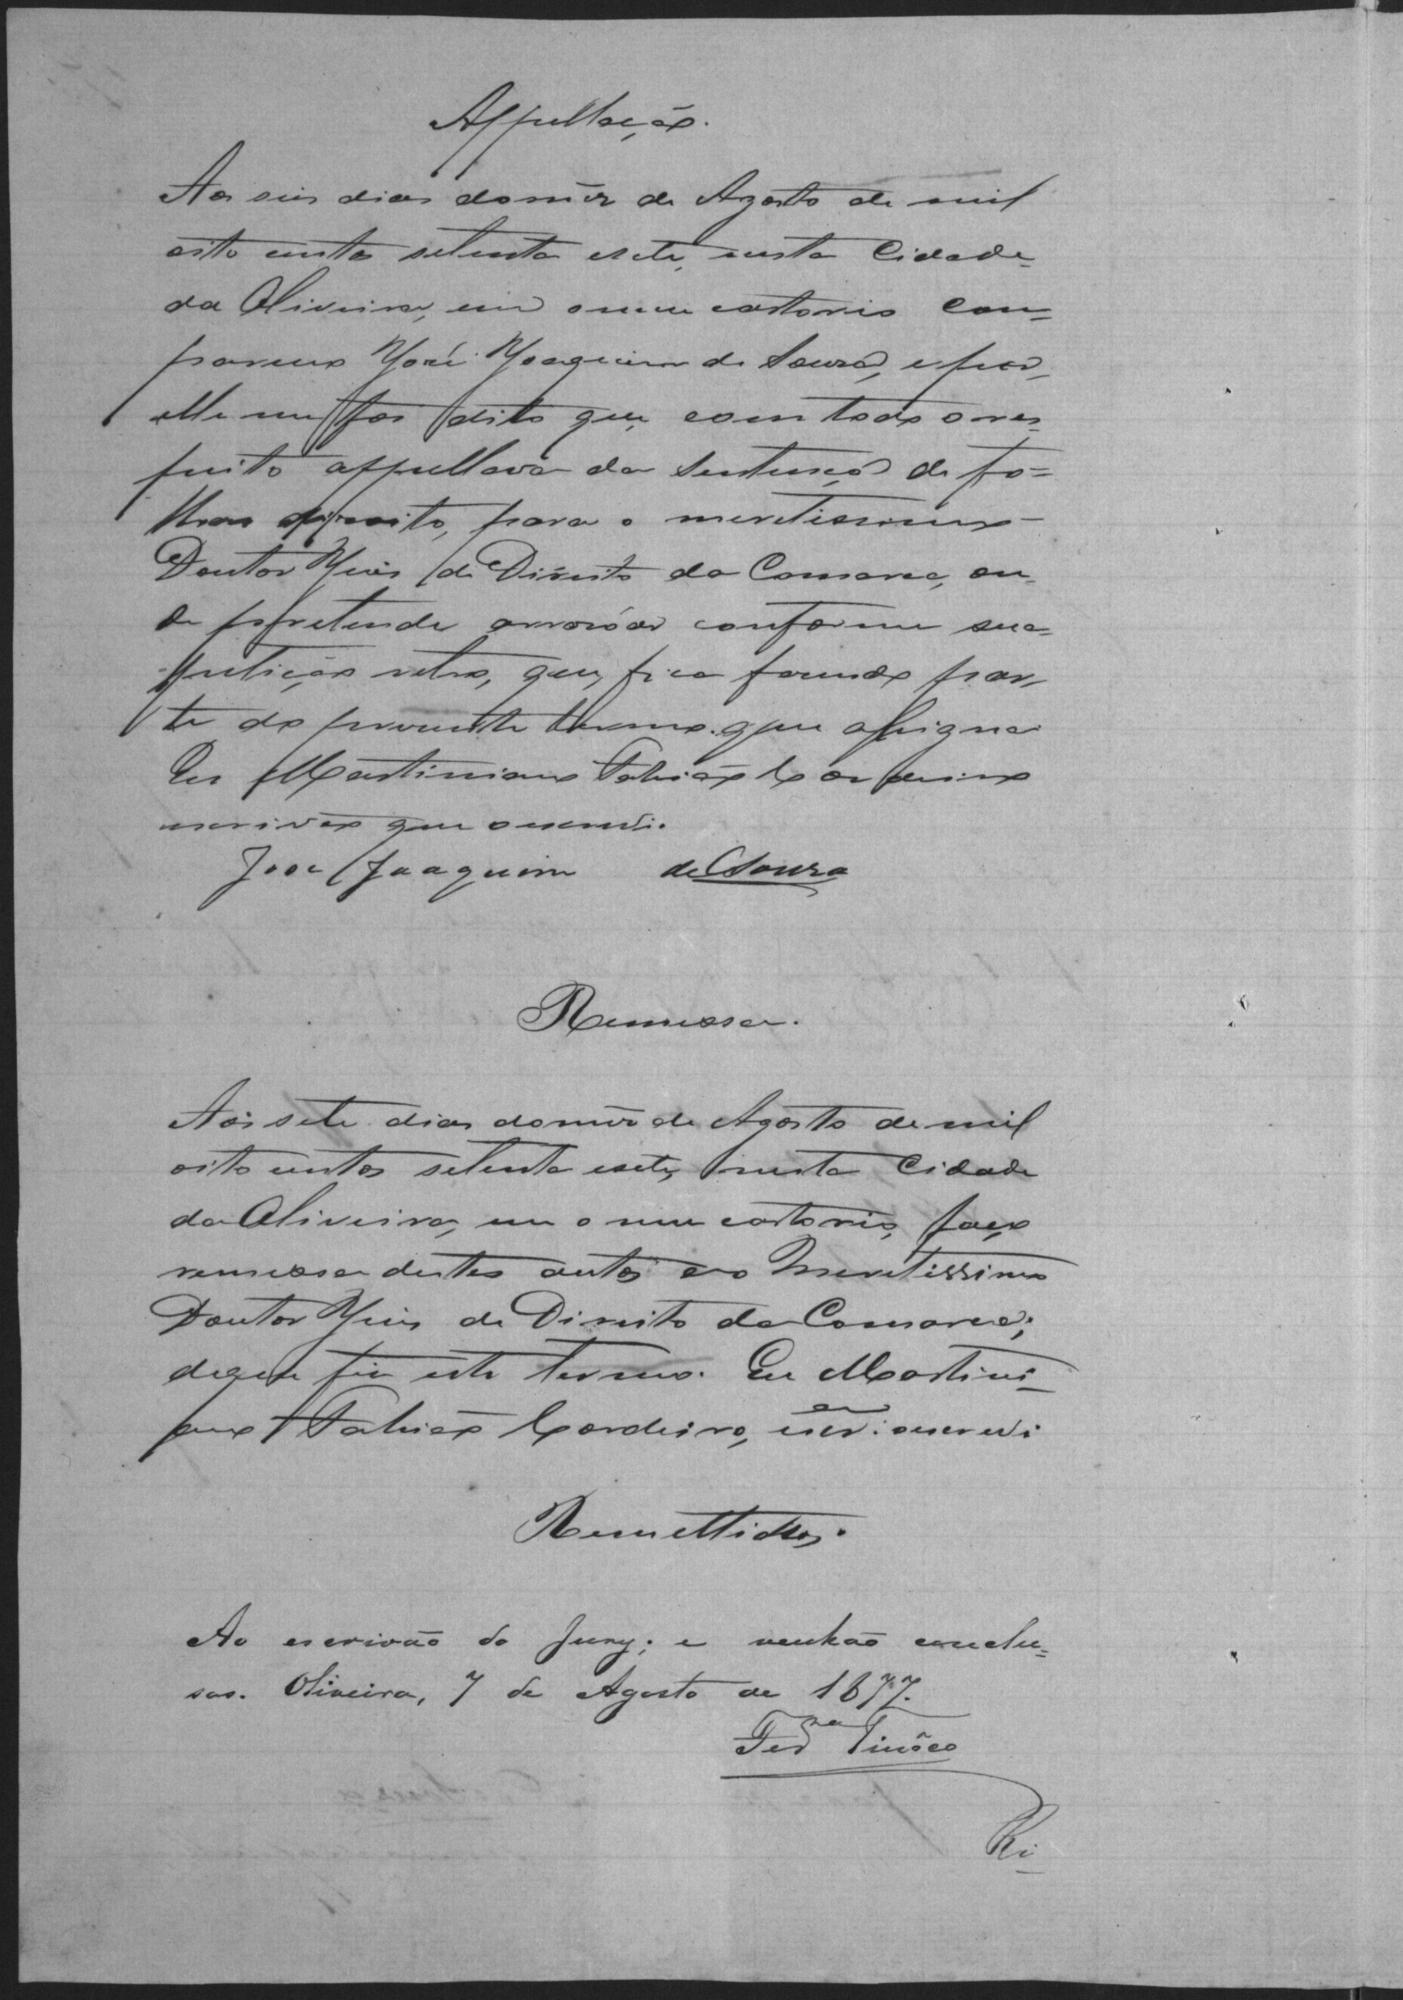 Appellação.
Aos seis dias do mêz de Agosto de mil
oito centos setenta e sete, nesta Cidade
da Oliveira, em o meu cartorio com=
pareceo José Joaquim de Souza, e por
elle me foi dito que, com todo o res=
peito appellava da Sentença de fo=
lhas oito, para o meretissimo
Doutor Juis de Direito da Comarca, on=
de pretende arrazoar conforme sua
petição retro, que, fica fazendo par=
te do presente termo. que assigna
Eu Martiniano Fabião Cordeiro
escrivão que o escrevi.
Jose Joaquim de Souza
Remessa.
Aos sete dias do mêz de Agosto de mil
oito centos setenta e sete, nesta Cidade
da Oliveira, em o meu cartorio, faço
remessa destes autos ao Meretissimo
Doutor Juis de Direito da Comarca;
de que fiz este termo. Eu Martini=
ano Fabião Cordeiro, escr.am o escrevi
Remettidos.
Ao escrivão do Jury; e venhão conclu=
sos. Oliveira, 7 de Agosto de 1877.
Tinôco
Re=